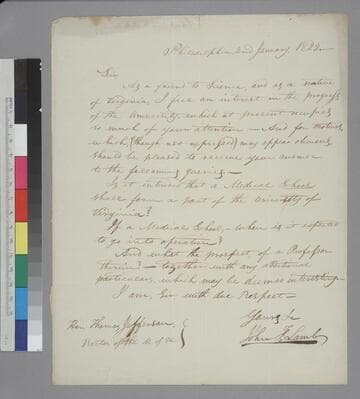 Philadelphia 2nd January 1822—
Sir
As a friend to Science, and as a native
of Virginia, I feel an interest in the progress
of the University which at present occupies
so much of your attention— And for motives
which (though not expressed) may appear obvious,
should be pleased to receive your answer
to the following queries—
Is it intended that a Medical School
shall form a part of the University of
Virginia?
If a Medical School, when is it expected
to go into operation?
And what the prospect of a Professor
therein?— together with any other
particulars, which may be deemed interesting—
I am, Sir, with due Respect—
Yours &c
John F Lamb
Hon. Thomas Jefferson,
Rector of the U. of Va